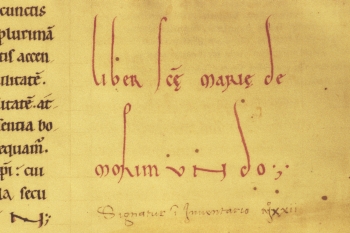 cunctis
plurimā
tis accen
uitatē.
uitatē. at
sentia bo
equam.
p̄i: cui
la, secu
liber scē marię de
morimundo:,
Signatus ī Inventario